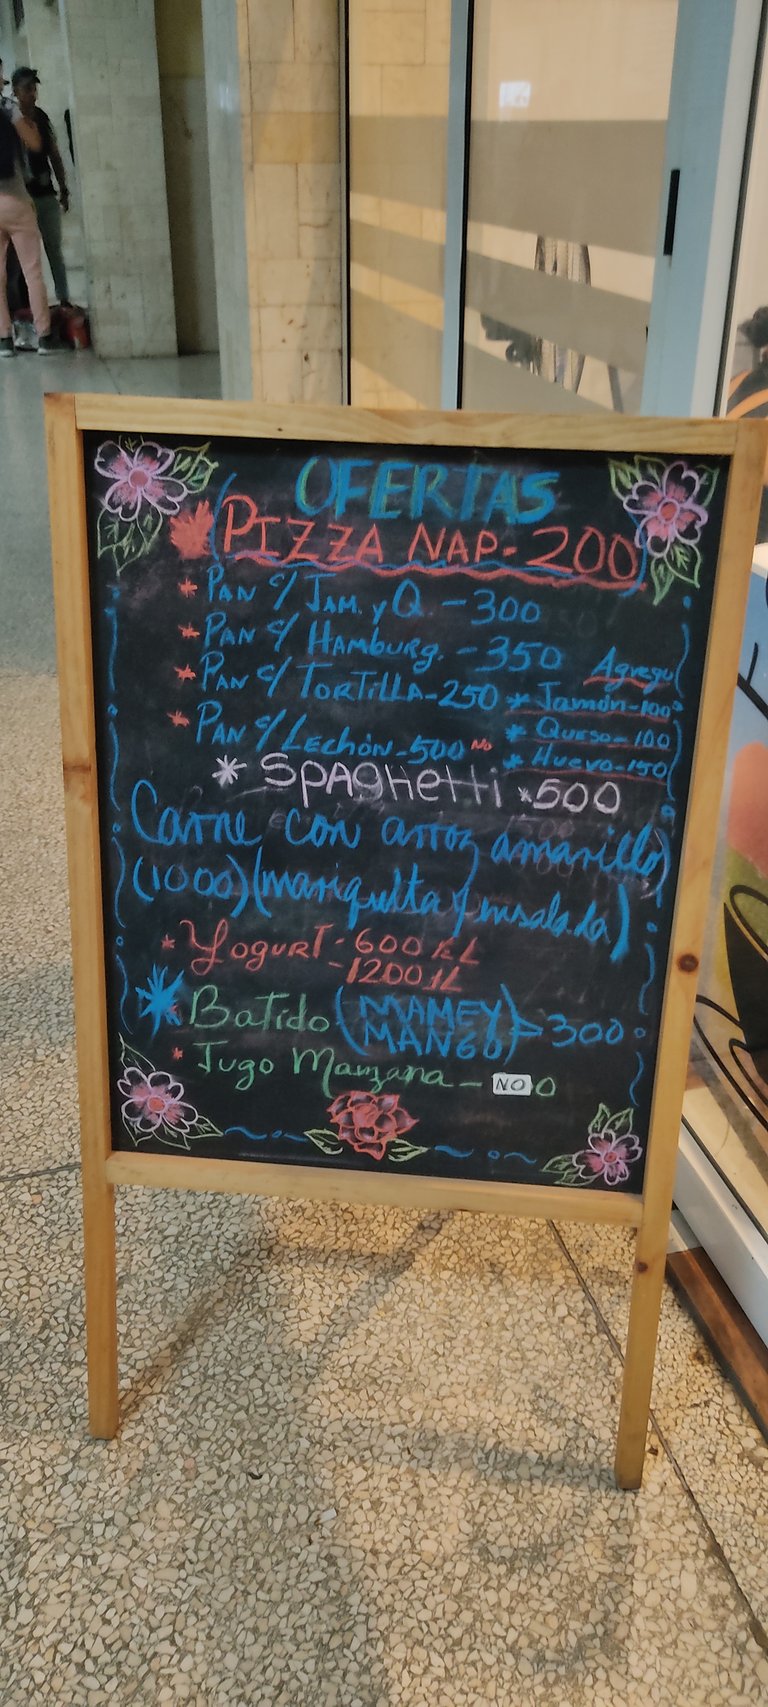 OFERTAS
PIZZA NAP - 200
* PAN C/ JAM. y Q. - 300
* PAN C/ HAMBURG. - 350
* PAN C/ TORTILLA - 250
* PAN C/ LECHÓN - 500 NO
Agrego
* Jamón - 100
* Queso - 100
* Huevo - 150
* SPAGHETTI * 500
Carne con arroz amarillo
(1000) (mariquita y ensalada)
* YOGURT - 600 1/2 L
- 1200 1L
* Batido (MAMEY
MANGO) 300
* Jugo Manzana - NO 0